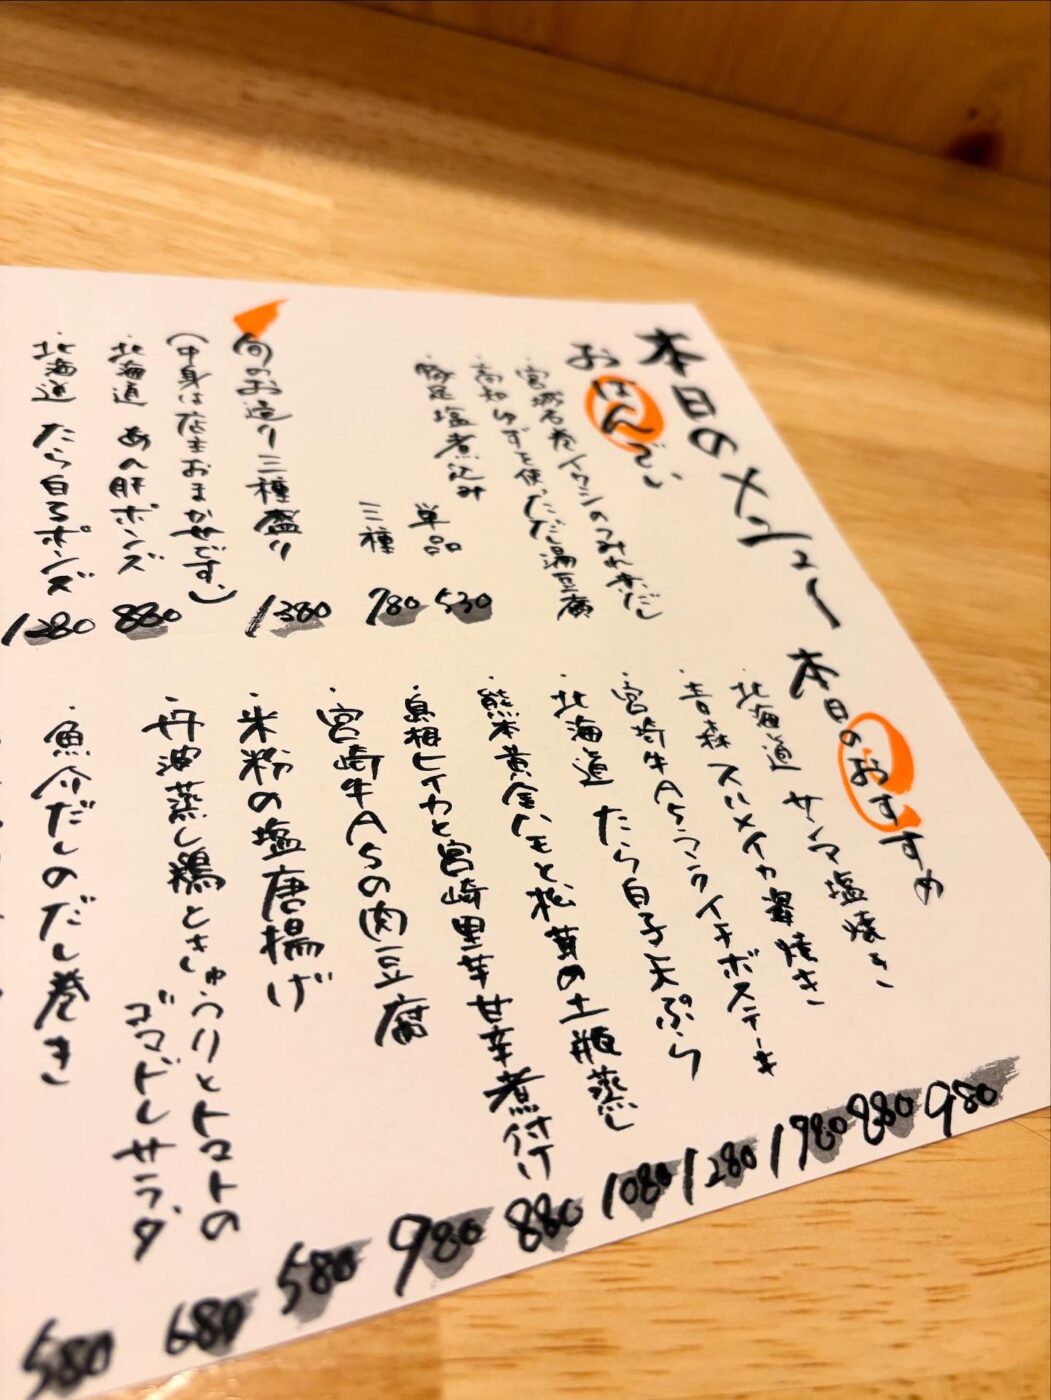 本日のメニュー
おばんでい
・宮城石巻イワシのつみれ煮だし
・高知ゆずを使っただし湯豆腐
・豚足塩煮込み
単品 530
三種 780
旬のお造り三種盛り 1380
(中身は店主おまかせです。)
・北海道 あん肝ポンズ 880
・北海道 たら白子ポンズ 1280
本日のおすすめ
・北海道 サンマ塩焼き 980
・青森 スルメイカ姿焼き 880
・宮崎牛A5ランクイチボステーキ 1980
・北海道 たら白子天ぷら 1280
・熊本黄金ハモと松茸の土瓶蒸し 1080
・島根ヒイカと宮崎里芋甘辛煮付け 880
・宮崎牛A5の肉豆腐 980
・米粉の塩唐揚げ 580
・丹波蒸し鶏ときゅうりとトマトの
ゴマドレサラダ 680
・魚介だしのだし巻き 580